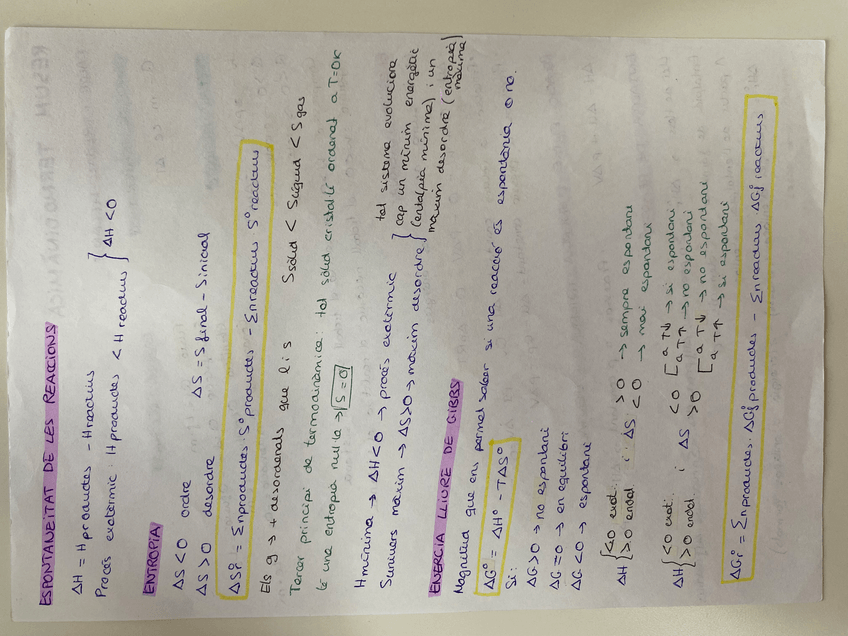 ESPONTANEÏTAT DE LES REACCIONS
ΔH = Hproductes - Hreactius
Procés exotèrmic: Hproductes < Hreactius } ΔH<0
ENTROPIA
ΔS<0 ordre
ΔS>0 desordre ΔS = Sfinal - Sinicial
ΔSr° = Σnproductes · S°productes - Σnreactius · S°reactius
Els g → + desordenats que l i s Ssòlid < Slíquid < Sgas
Tercer principi de termodinàmica: tot sòlid cristal·lí ordenat a T=0K
té una entropia nul·la → S=0
Hmínima → ΔH<0 → procés exotèrmic
Sunivers màxim → ΔS>0 → màxim desordre } tot sistema evoluciona
cap un mínim energètic
(entalpia mínima) i un
màxim desordre (entropia
màxima)
ENERGIA LLIURE DE GIBBS
Magnitud que ens permet saber si una reacció és espontània o no.
ΔG° = ΔH° - TΔS°
Si:
ΔG>0 → no espontani
ΔG=0 → en equilibri
ΔG<0 → espontani
ΔH { <0 exot. i ΔS >0 → sempre espontani
>0 endot. <0 → mai espontani
ΔH { <0 exot. i ΔS <0 [ a T↓ → si espontani
a T↑ → no espontani
>0 endot. >0 [ a T↓ → no espontani
a T↑ → si espontani
ΔGr° = Σnproductes · ΔGf°productes - Σnreactius · ΔGf°reactius